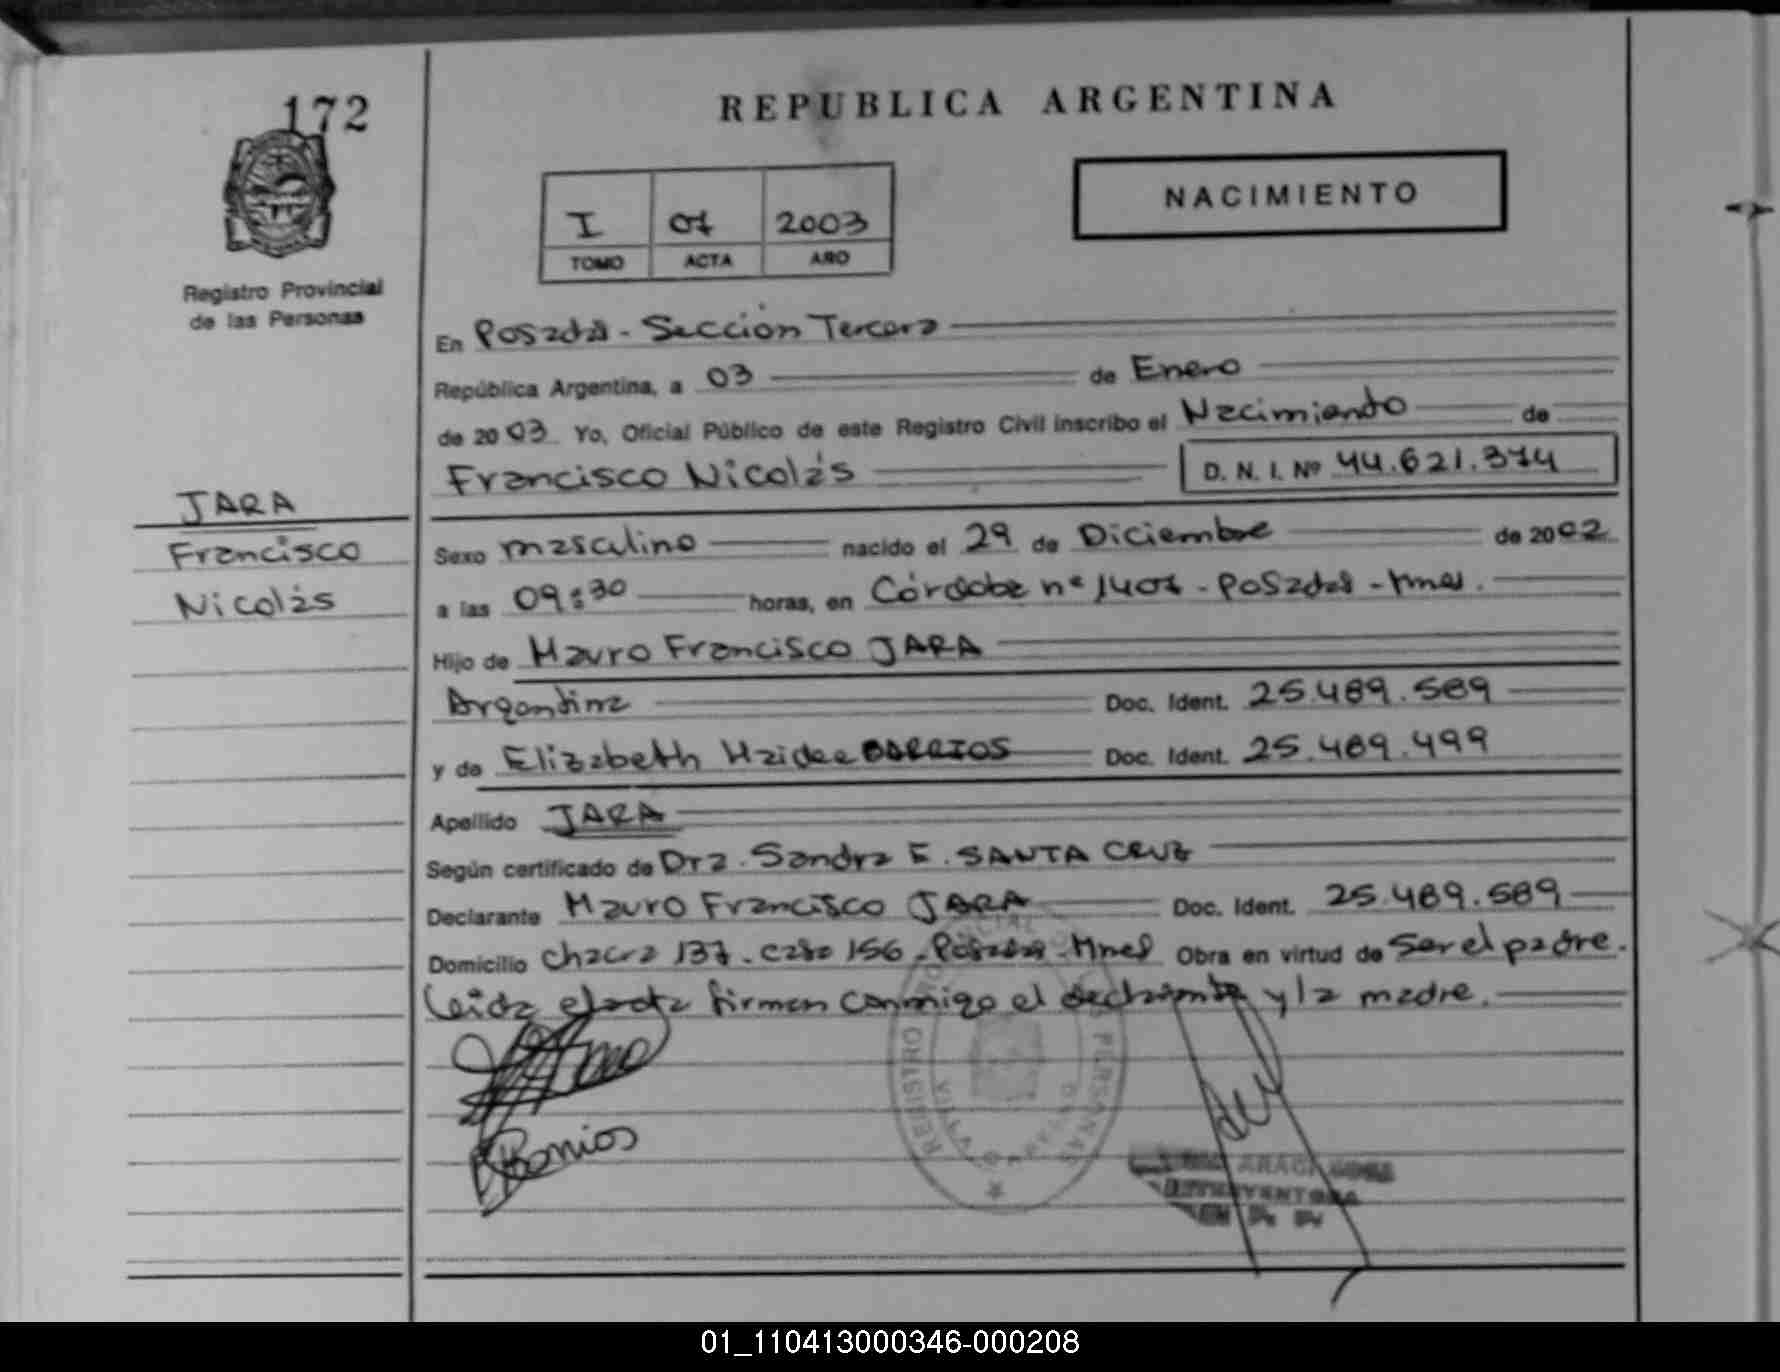 172
REPUBLICA ARGENTINA
NACIMIENTO
I 07 2003
TOMO ACTA AÑO
Registro Provincial
de las Personas
En Posadas - Sección Tercera
República Argentina, a 03 de Enero
de 2003 Yo, Oficial Público de este Registro Civil inscribo el Nacimiento de
Francisco Nicolás D. N. I. Nº 44.621.374
JARA
Francisco
Nicolás
Sexo masculino nacido el 29 de Diciembre de 2002
a las 09:30 horas, en Córdoba nº 1407 - Posadas - Mnes.
Hijo de Mauro Francisco JARA
Argentina Doc. Ident. 25.489.589
y de Elizabeth Haidee BARRIOS Doc. Ident. 25.489.499
Apellido JARA
Según certificado de Dra. Sandra E. SANTA CRUZ
Declarante Mauro Francisco JARA Doc. Ident. 25.489.589
Domicilio Chacra 137 - casa 156 - Posadas - Mnes Obra en virtud de ser el padre.
leída el acta firman conmigo el declarante y la madre.
Barrios
REGISTRO PERSONAS
01_110413000346-000208